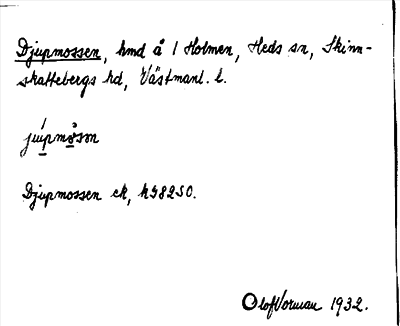 Djupmossen, hmd å 1 Holmen, Heds sn, Skinn-
skattebergs hd, Västmanl. l.
Djupmossen ek, h58250.
Olof Vorman 1932.